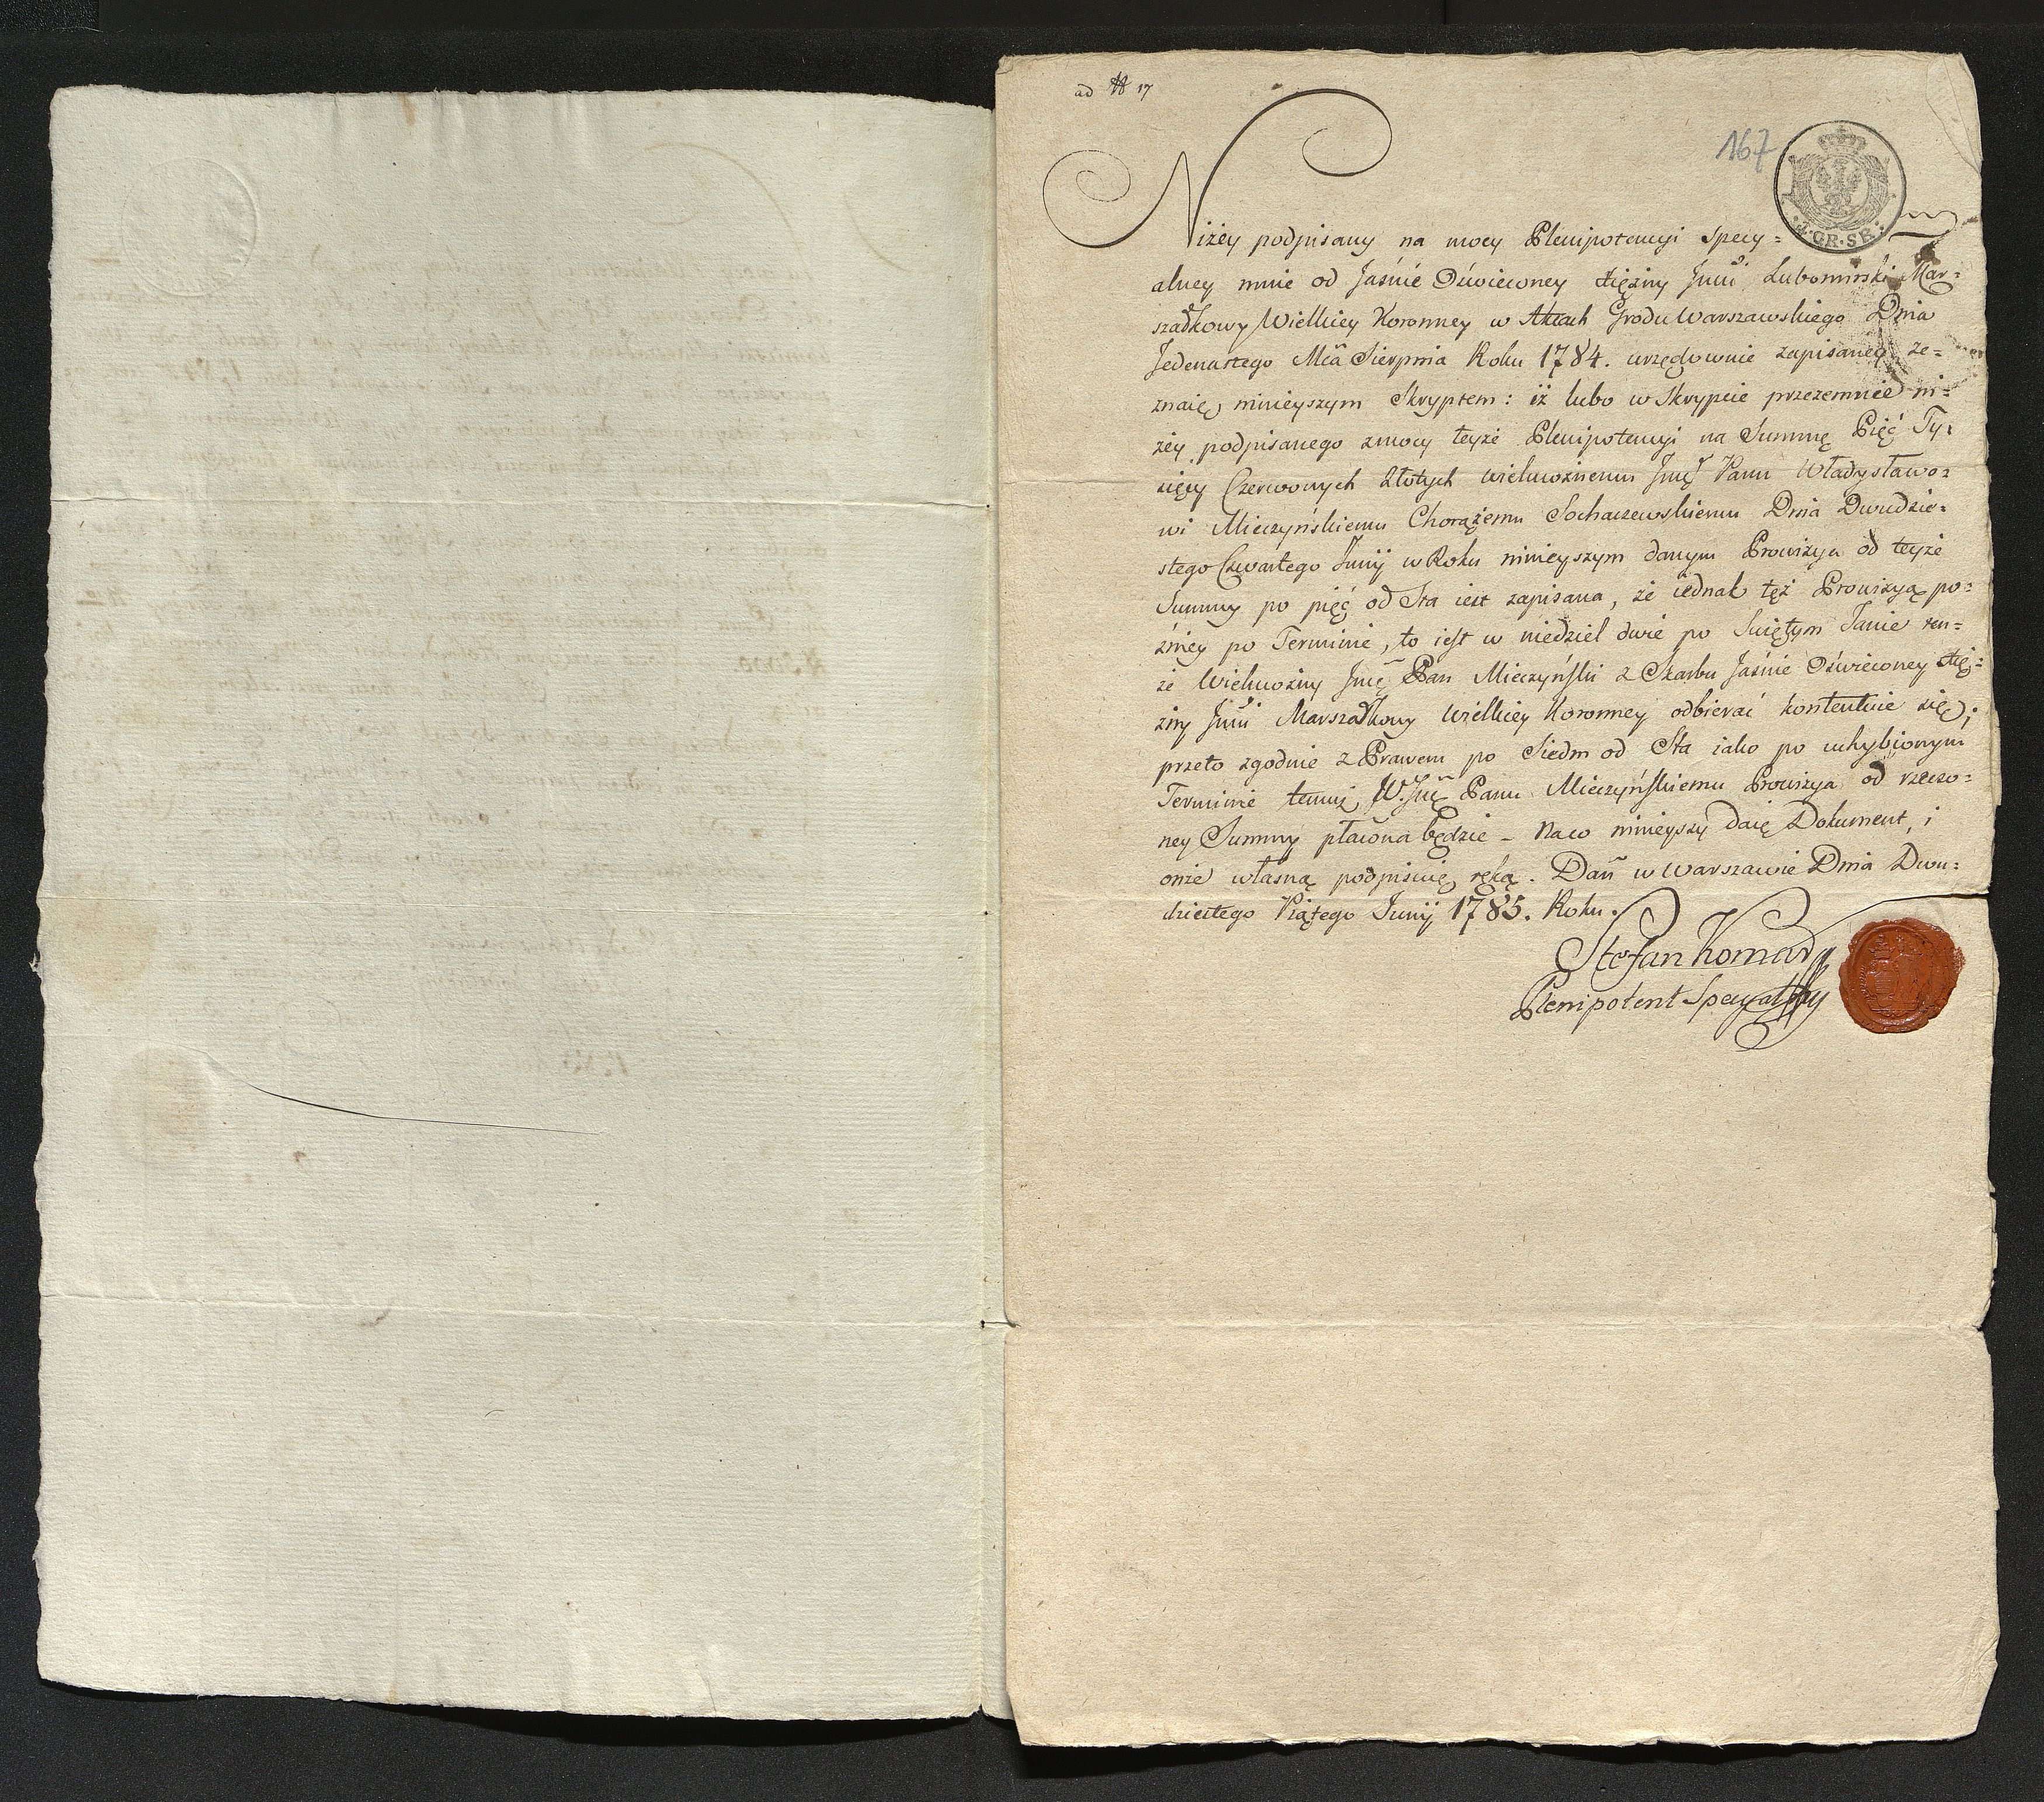 ad № 17
167
4·GR·SR·
Niżey podpisany na mocy Plenipotencyi Specy=
alney mnie od Jaśnie Oświeconey Xiężny Jmći Lubomirski Mar=
szałkowy Wielkiey Koronney w Aktach Grodu Warszawskiego Dnia
Jedenastego Mca Sierpnia Roku 1784. urzędownie zapisaney ze=
znaię ninieyszym Skryptem: iż lubo w Skrypcie przezemnie ni=
żey podpisanego z mocy teyże Plenipotencyi na Summę Pięć Ty=
sięcy Czerwonych Złotych Wielmożnemu Jmę Panu Władysławo=
wi Mieczyńskiemu Chorążemu Sochaczewskiemu Dnia Dwudzie=
stego Czwartego Junij w Roku ninieyszym danym Prowizya od teyże
Summy po pięć od Sta iest zapisana, że iednak też Prowizyą po=
źniey po Terminie, to iest w niedziel dwie po Świętym Janie ten=
że Wielmożny Jmę Pan Mieczyński z Skarbu Jaśnie Oświeconey Xię=
żny Jmći Marszałkowy Wielkiey Koronney odbierać kontentuie się;
przeto zgodnie z Prawem po Siedm od Sta iako po uchybionym
Terminie temuż W. Jmę Panu Mieczyńskiemu Prowizya od rzeczo=
ney Summy płacona będzie – Na co ninieyszy daię Dokument, i
onże własną podpisuię ręką. Dañ w Warszawie Dnia Dwu=
dziestego Piątego Junij 1785. Roku.
Stefan Komar
Plenipotent Specyalny